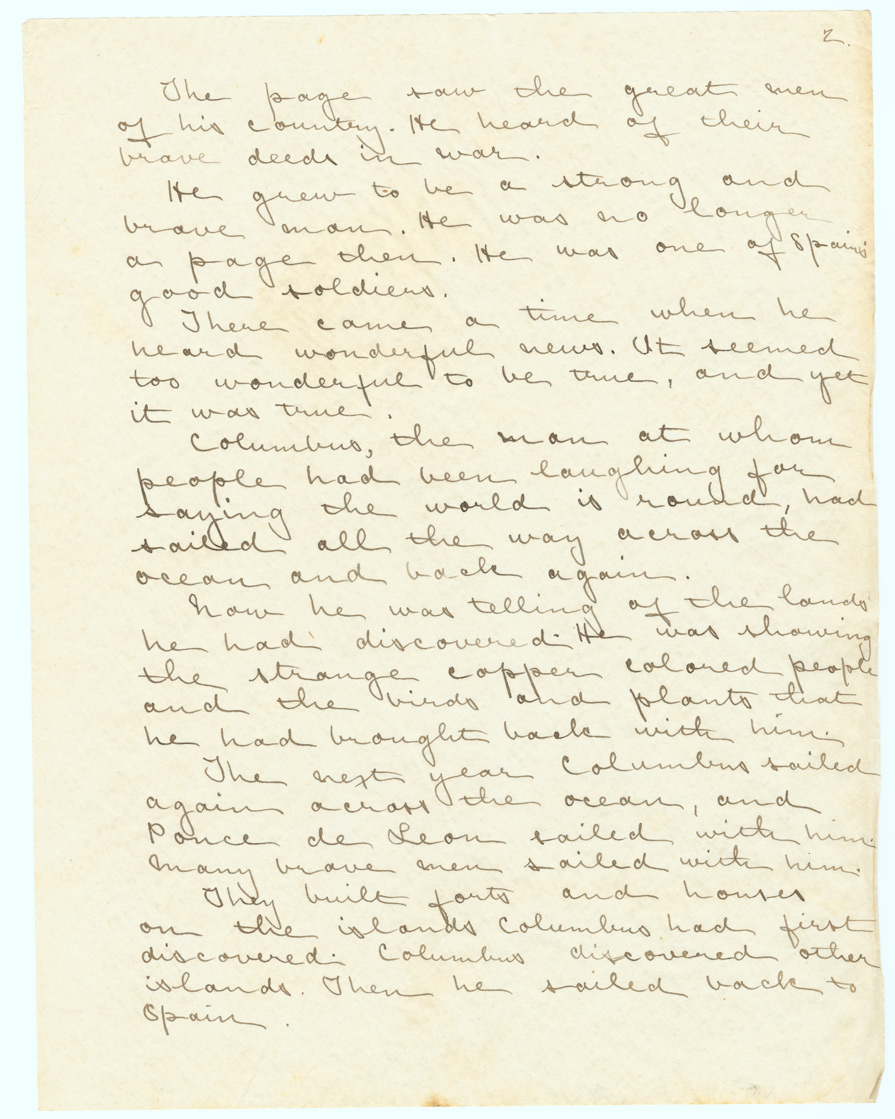 2.
The page saw the great men
of his country. He heard of their
brave deeds in war.
He grew to be a strong and
brave man. He was no longer
a page then. He was one of Spain's
good soldiers.
There came a time when he
heard wonderful news. It seemed
too wonderful to be true, and yet
it was true.
Columbus, the man at whom
people had been laughing for
saying the world is round, had
sailed all the way across the
ocean and back again.
Now he was telling of the lands
he had discovered. He was showing
the strange copper colored people
and the birds and plants that
he had brought back with him.
The next year Columbus sailed
again across the ocean, and
Ponce de Leon sailed with him.
Many brave men sailed with him.
They built forts and houses
on the islands Columbus had first
discovered. Columbus discovered other
islands. Then he sailed back to
Spain.